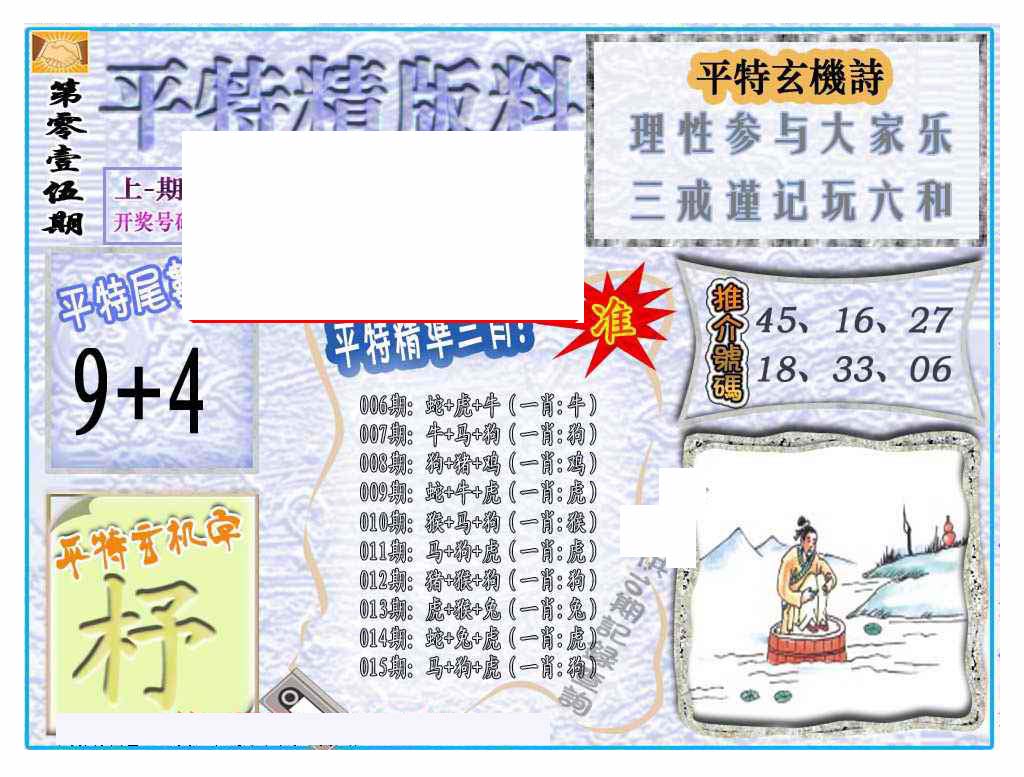 第零壹伍期
平特精版料
上-期
开奖号
平特玄機詩
理性参与大家乐
三戒谨记玩六和
平特尾
9+4
平特精準三肖!
准
006期: 蛇+虎+牛(一肖:牛)
007期: 牛+马+狗(一肖:狗)
008期: 狗+猪+鸡(一肖:鸡)
009期: 蛇+牛+虎(一肖:虎)
010期: 猴+马+狗(一肖:猴)
011期: 马+狗+虎(一肖:虎)
012期: 猪+猴+狗(一肖:狗)
013期: 虎+猴+兔(一肖:兔)
014期: 蛇+兔+虎(一肖:虎)
015期: 马+狗+虎(一肖:狗)
推介號碼
45、16、27
18、33、06
平特玄机字
杼
期記錄查詢